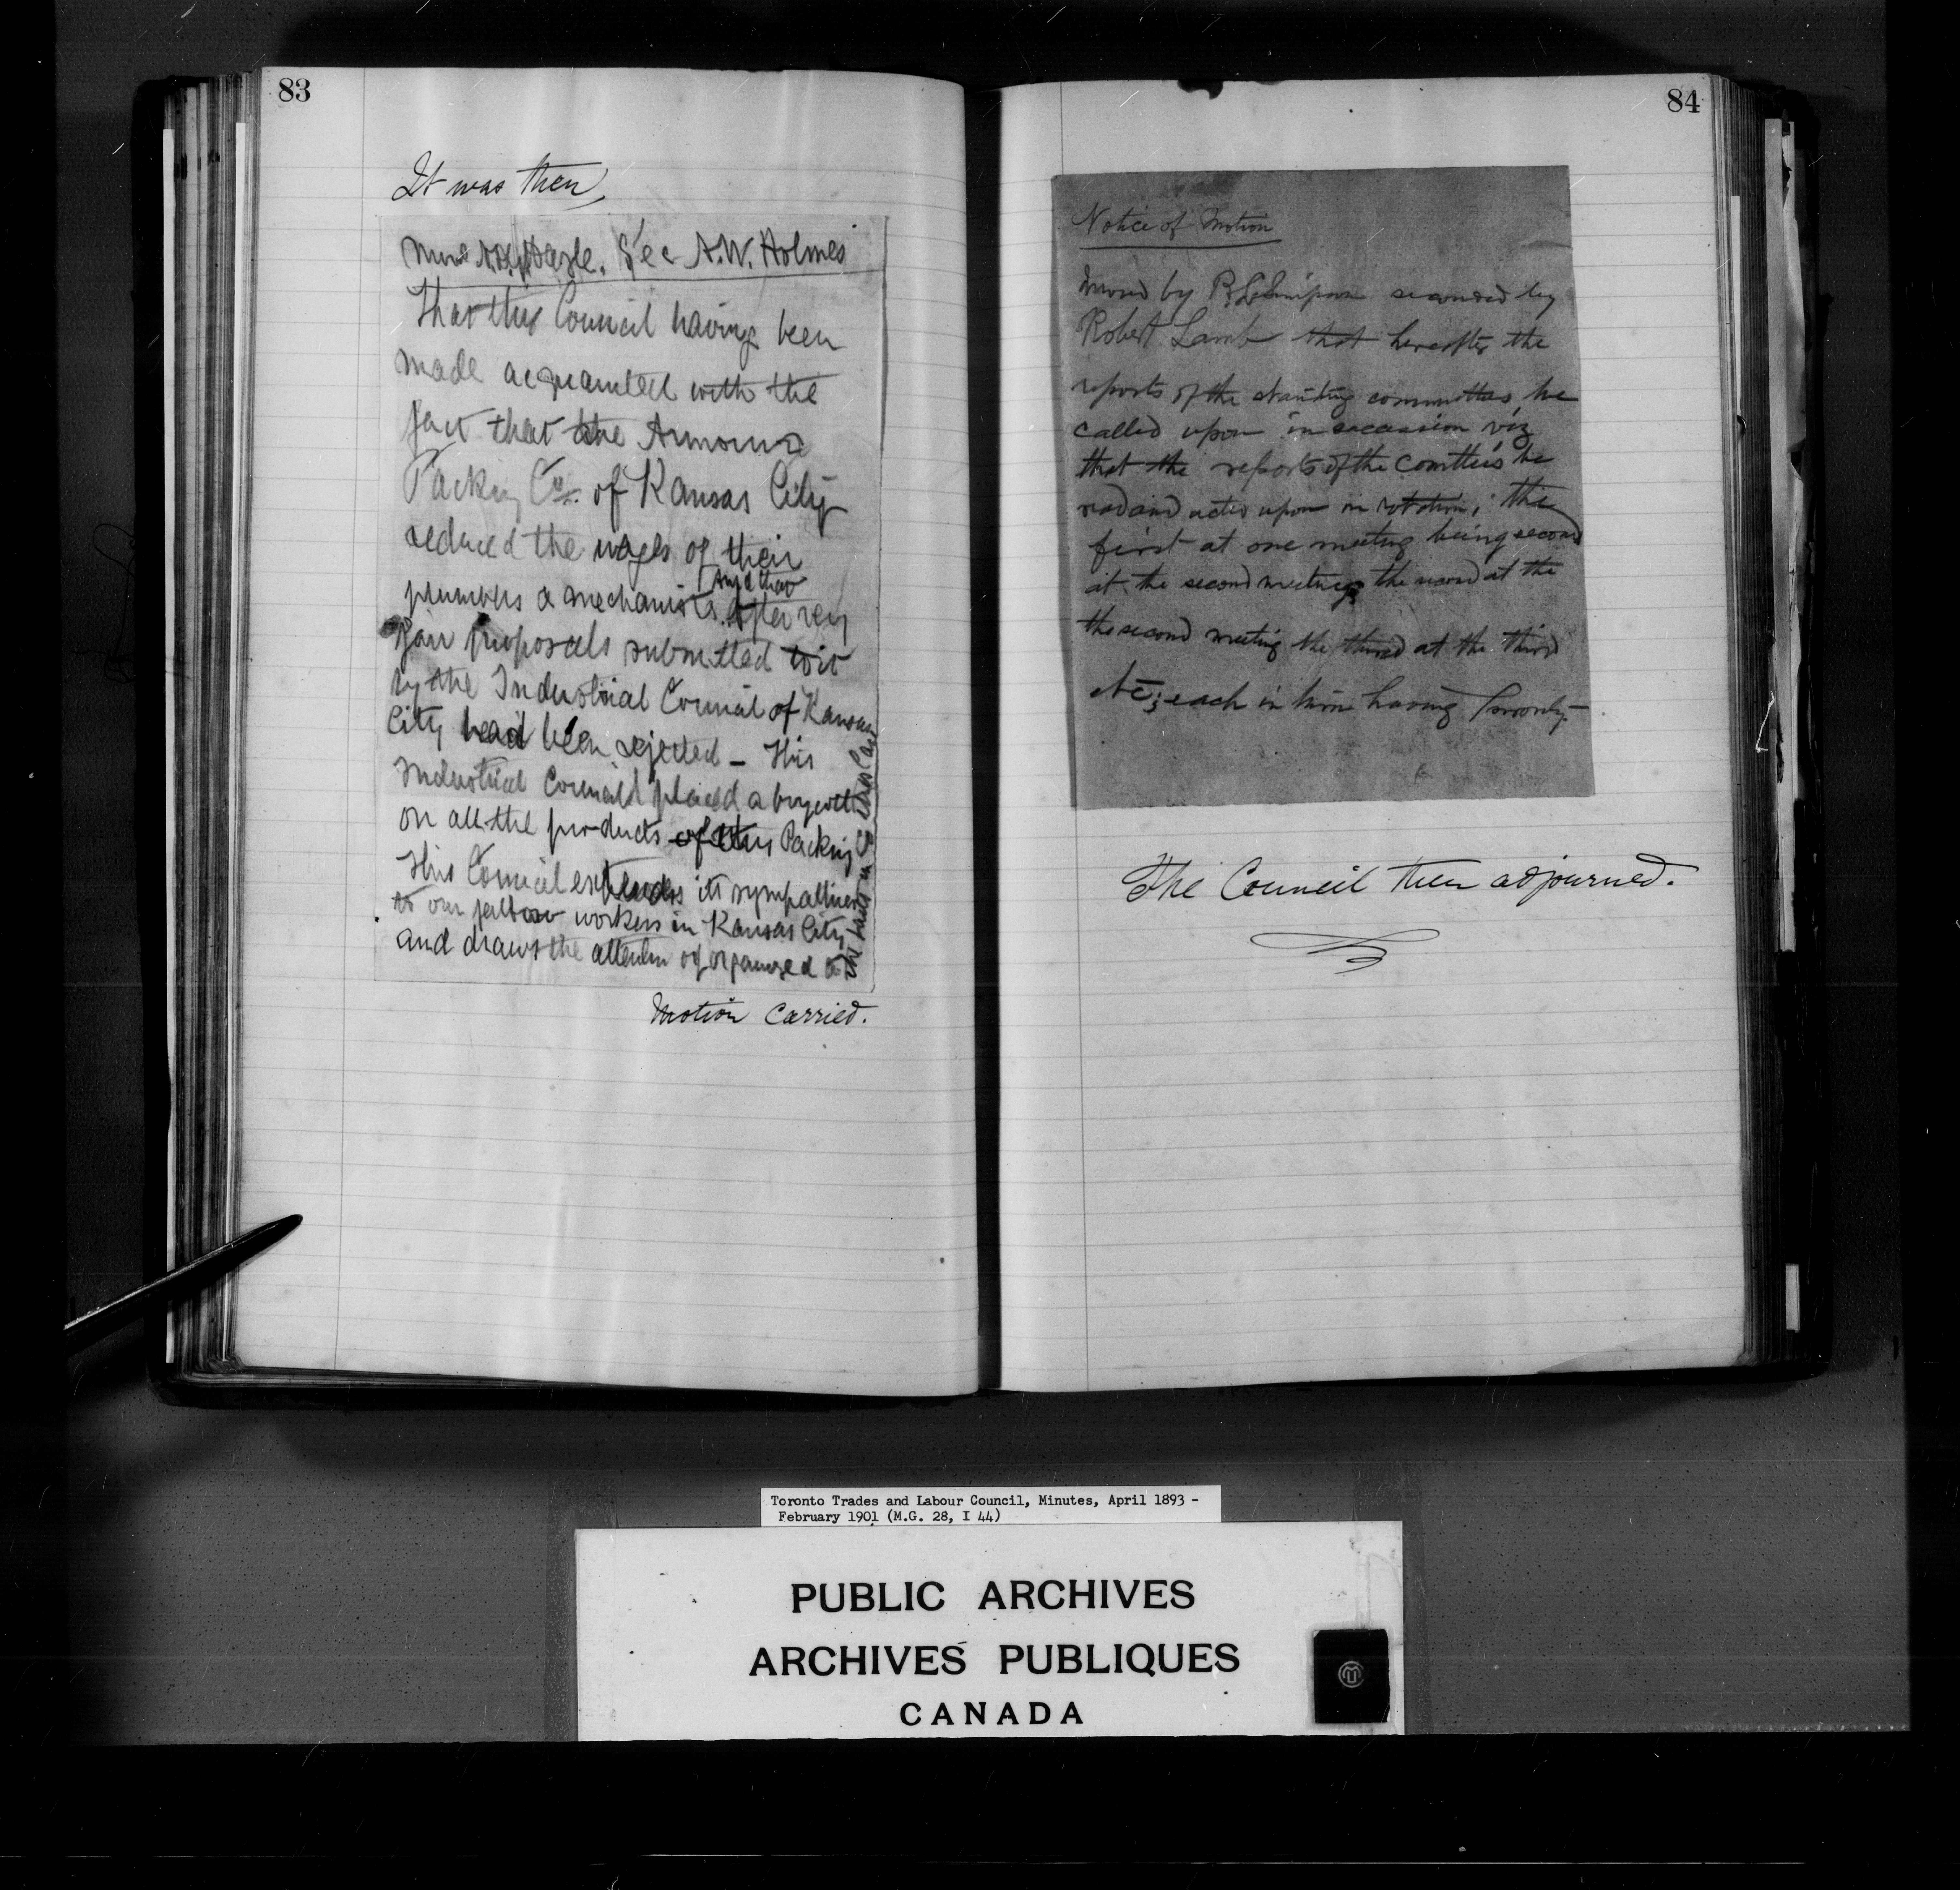 83
It was then
Hazle. Sec A.W. Holmes
That this Council having been
made acquainted with the
fact that the Armour
Packing Co. of Kansas City
reduced the wages of their
plumbers & mechanics. And that
after very
fair proposals submitted to it
by the Industrial Council of Kansas
City had been rejected – This
Industrial Council placed a boycott
on all the products of this Packing Co
This Council extends its sympathies
to our fellow workers in Kansas City
and draws the attention of organized
Motion Carried.
84
Notice of Motion
Moved by seconded by
Robert Lamb that hereafter the
reports of the standing committees be
called upon in succession viz
that the reports of the Comttees be
read and acted upon in rotation; the
first at one meeting being second
at the second meeting the second at the
the second meeting the third at the third
etc; each in turn having Priority
The Council then adjourned.
Toronto Trades and Labour Council, Minutes, April 1893 -
February 1901 (M.G. 28, I 44)
PUBLIC ARCHIVES
ARCHIVES PUBLIQUES
CANADA